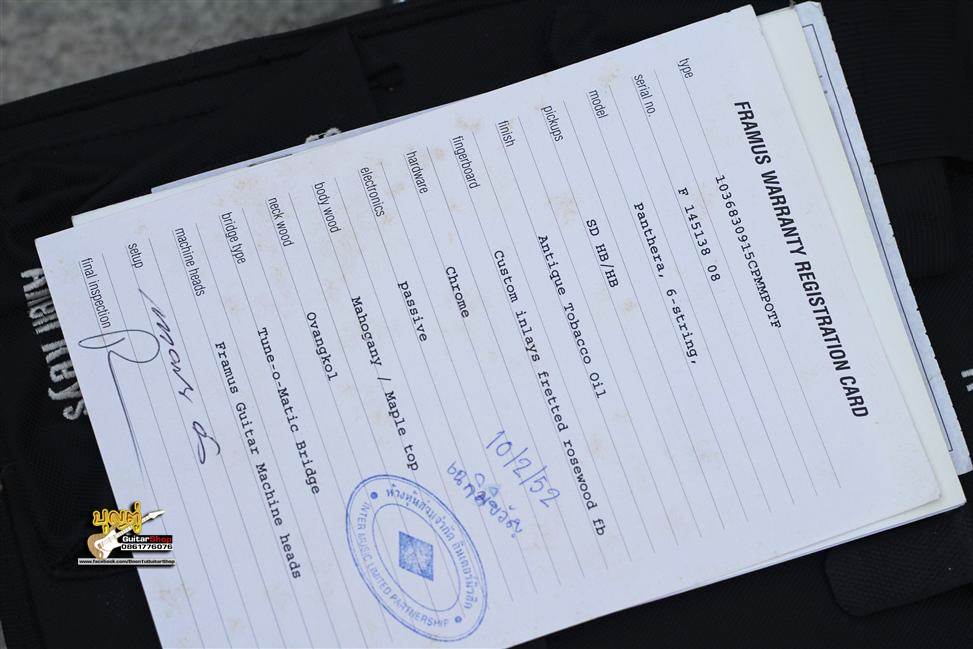 FRAMUS WARRANTY REGISTRATION CARD
type 1036830915CPMMPOTF
serial no. F 145138 08
model Panthera, 6-string,
pickups SD HB/HB
finish Antique Tobacco Oil
fingerboard Custom inlays fretted rosewood fb
hardware Chrome
electronics passive
body wood Mahogany / Maple top
neck wood Ovangkol
bridge type Tune-o-Matic Bridge
machine heads Framus Guitar Machine heads
setup
final inspection
10/2/52
ห้างหุ้นส่วนจำกัด อินเตอร์มิวสิค
INTER MUSIC LIMITED PARTNERSHIP
บุญตู่
GuitarShop
0861776076
www.facebook.com/BoonTuGuitarShop